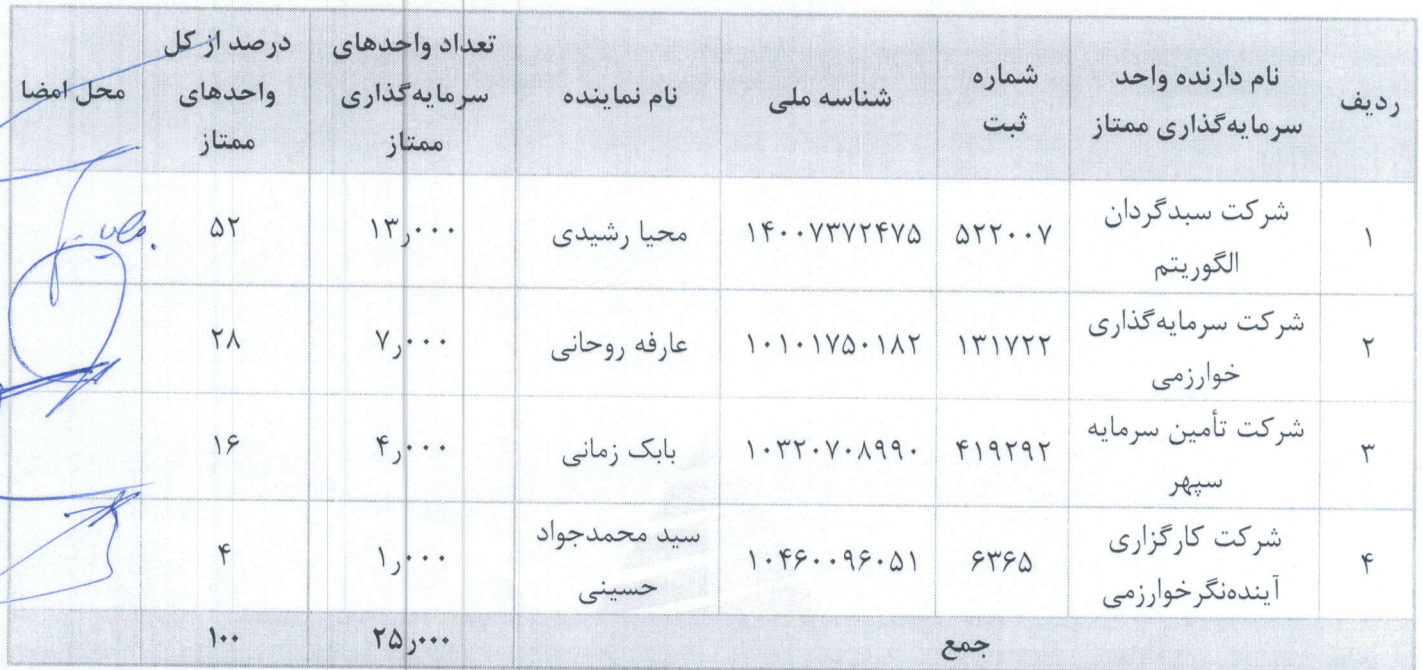 ردیف
نام دارنده واحد
سرمایه‌گذاری ممتاز
شماره
ثبت
شناسه ملی
نام نماینده
تعداد واحدهای
سرمایه‌گذاری
ممتاز
درصد از کل
واحدهای
ممتاز
محل امضا
۱
شرکت سبدگردان
الگوریتم
۵۲۲۰۰۷
۱۴۰۰۷۳۷۲۴۷۵
محیا رشیدی
۱۳٫۰۰۰
۵۲
۲
شرکت سرمایه‌گذاری
خوارزمی
۱۳۱۷۲۲
۱۰۱۰۱۷۵۰۱۸۲
عارفه روحانی
۷٫۰۰۰
۲۸
۳
شرکت تأمین سرمایه
سپهر
۴۱۹۲۹۲
۱۰۳۲۰۷۰۸۹۹۰
بابک زمانی
۴٫۰۰۰
۱۶
۴
شرکت کارگزاری
آینده‌نگر خوارزمی
۶۳۶۵
۱۰۴۶۰۰۹۶۰۵۱
سید محمدجواد
حسینی
۱٫۰۰۰
۴
جمع
۲۵٫۰۰۰
۱۰۰